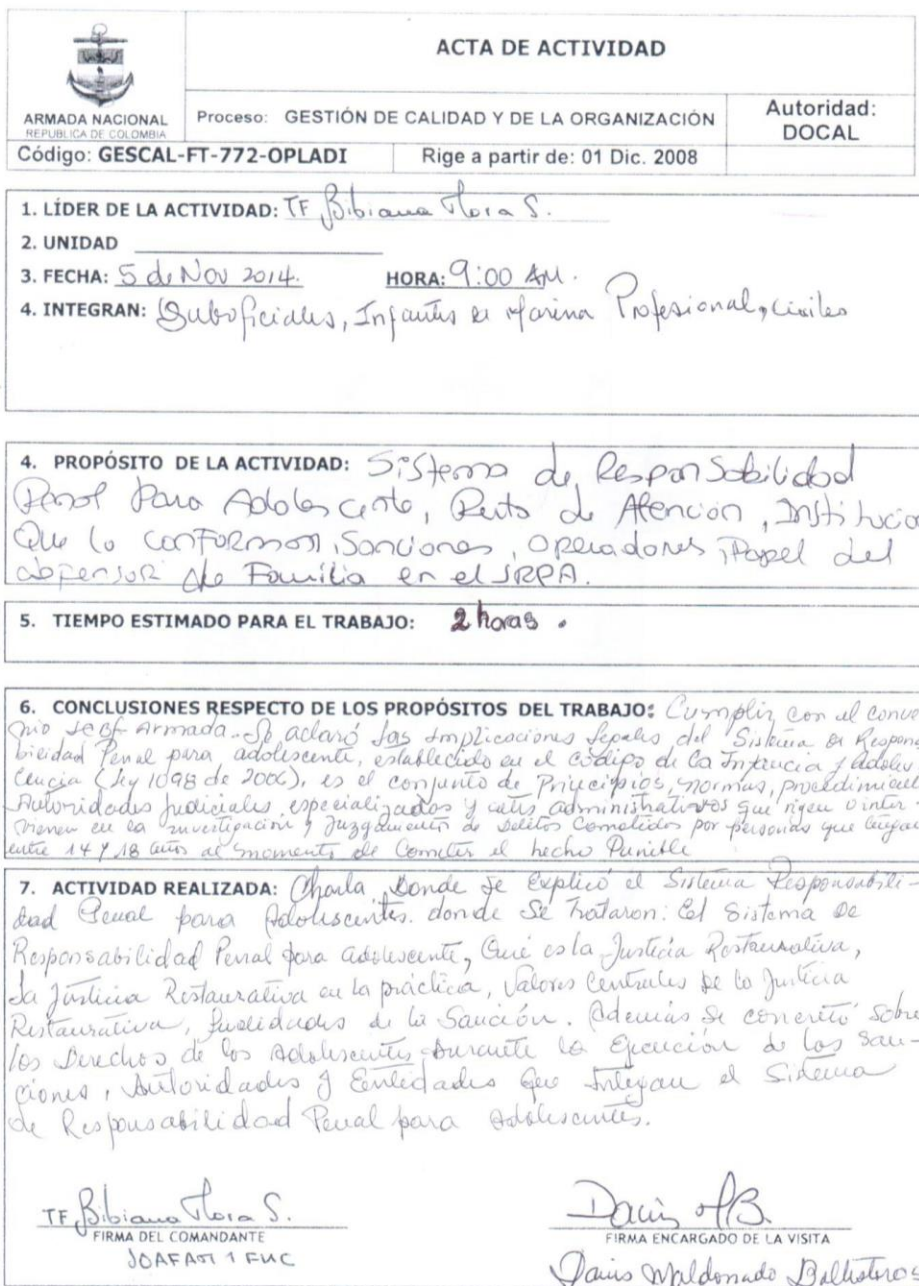 ACTA DE ACTIVIDAD
ARMADA NACIONAL
REPUBLICA DE COLOMBIA
Proceso: GESTIÓN DE CALIDAD Y DE LA ORGANIZACIÓN
Autoridad:
DOCAL
Código: GESCAL-FT-772-OPLADI
Rige a partir de: 01 Dic. 2008
1. LÍDER DE LA ACTIVIDAD: TF Bibiana Flora S.
2. UNIDAD
3. FECHA: 5 de Nov 2014. HORA: 9:00 AM.
4. INTEGRAN: Suboficiales, Infantes de Marina Profesional, civiles
4. PROPÓSITO DE LA ACTIVIDAD: Sistema de Responsabilidad
Penal Para Adolescente, Ruta de Atención, Institucion
Que lo conforman, Sanciones, Operadores, Papel del
defensor de Familia en el SRPA.
5. TIEMPO ESTIMADO PARA EL TRABAJO: 2 horas.
6. CONCLUSIONES RESPECTO DE LOS PROPÓSITOS DEL TRABAJO: Cumplir con el conve
nio ICBF Armada. Se aclaró las implicaciones legales del Sistema de Respons
bilidad Penal para adolescente, establecido en el código de la Infancia y adoles
cencia (ley 1098 de 2006), es el conjunto de Principios, normas, procedimient
Autoridades Judiciales, especializados y entes administrativos que rigen o inter
vienen en la investigación y Juzgamiento de delitos Cometidos por personas que tengan
entre 14 y 18 años al momento de Cometer el hecho Punible
7. ACTIVIDAD REALIZADA: Charla, Donde se explicó el Sistema Responsabili-
dad Penal para Adolescentes. donde se trataron: El Sistema de
Responsabilidad Penal para adolescente, Qué es la Justicia Restaurativa,
La Justicia Restaurativa en la práctica, Valores Centrales de la Justicia
Restaurativa, finalidades de la Sanción. Además se concretó sobre
los Derechos de los Adolescentes Durante la Ejecución de las San-
ciones, Autoridades y Entidades que Integan el Sistema
de Responsabilidad Penal para Adolescentes.
TF Bibiana Flora S.
FIRMA DEL COMANDANTE
JOAFAM 1 FNC
FIRMA ENCARGADO DE LA VISITA
Danis Maldonado Ballesteros